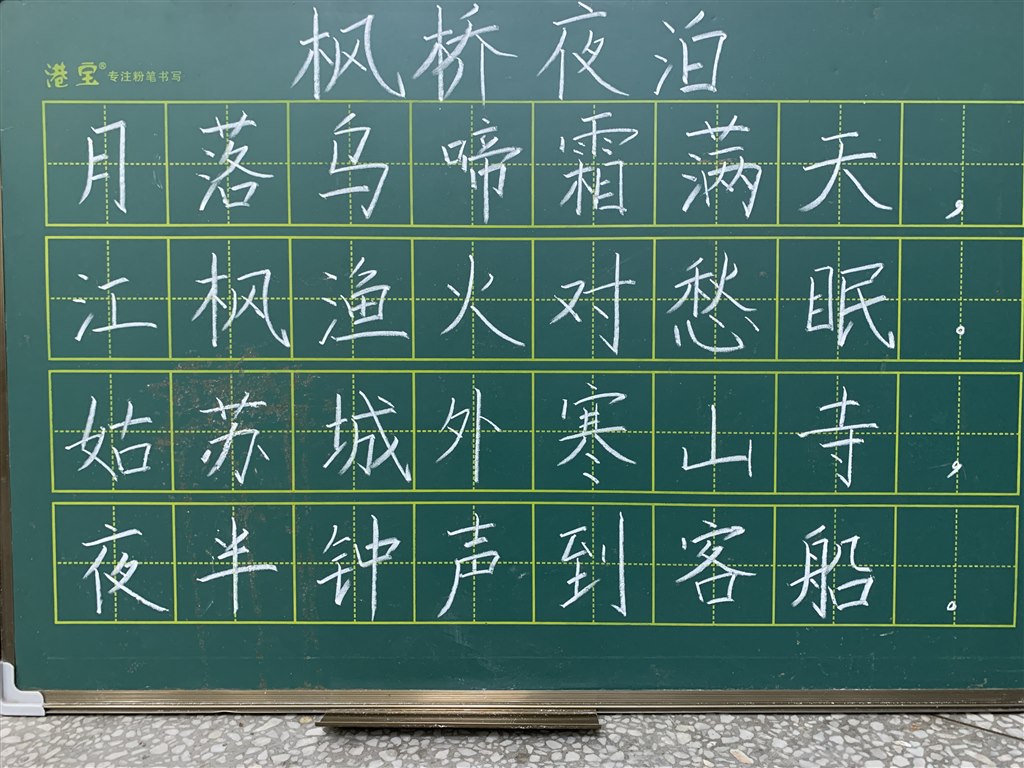 枫桥夜泊
港宝® 专注粉笔书写
月落乌啼霜满天，
江枫渔火对愁眠。
姑苏城外寒山寺，
夜半钟声到客船。